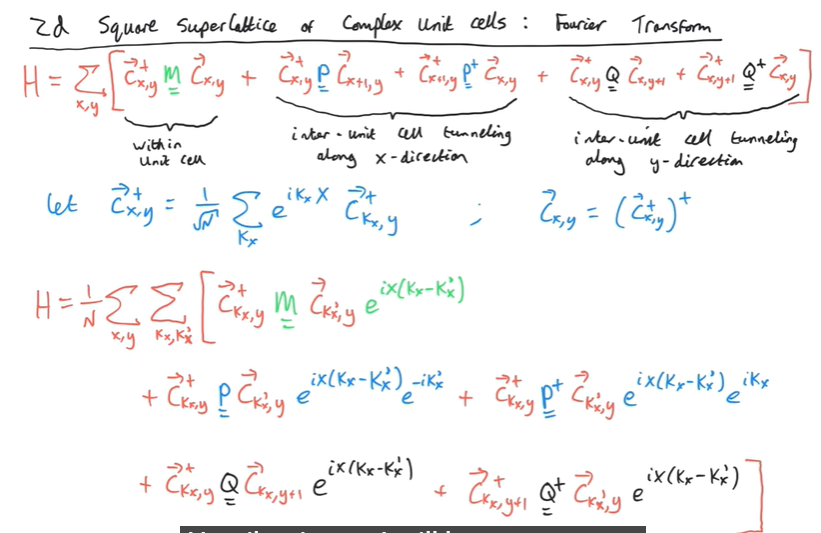 2d Square Superlattice of Complex Unit cells : Fourier Transform
H = Σ_{x,y} [ \vec{C}^†_{x,y} \underline{\underline{M}} \vec{C}_{x,y} + \vec{C}^†_{x,y} \underline{\underline{P}} \vec{C}_{x+1,y} + \vec{C}^†_{x+1,y} \underline{\underline{P}}^† \vec{C}_{x,y} + \vec{C}^†_{x,y} \underline{\underline{Q}} \vec{C}_{x,y+1} + \vec{C}^†_{x,y+1} \underline{\underline{Q}}^† \vec{C}_{x,y} ]
within inter-unit cell tunneling inter-unit cell tunneling
unit cell along x-direction along y-direction
let \vec{C}^†_{x,y} = \frac{1}{\sqrt{N}} Σ_{K_x} e^{iK_x x} \vec{C}^†_{K_x,y} ; \vec{C}_{x,y} = (\vec{C}^†_{x,y})^†
H = \frac{1}{N} Σ_{x,y} Σ_{K_x,K_x'} [ \vec{C}^†_{K_x,y} \underline{\underline{M}} \vec{C}_{K_x',y} e^{ix(K_x-K_x')}
+ \vec{C}^†_{K_x,y} \underline{\underline{P}} \vec{C}_{K_x',y} e^{ix(K_x-K_x')} e^{-iK_x'} + \vec{C}^†_{K_x,y} \underline{\underline{P}}^† \vec{C}_{K_x',y} e^{ix(K_x-K_x')} e^{iK_x}
+ \vec{C}^†_{K_x,y} \underline{\underline{Q}} \vec{C}_{K_x',y+1} e^{ix(K_x-K_x')} + \vec{C}^†_{K_x,y+1} \underline{\underline{Q}}^† \vec{C}_{K_x',y} e^{ix(K_x-K_x')} ]